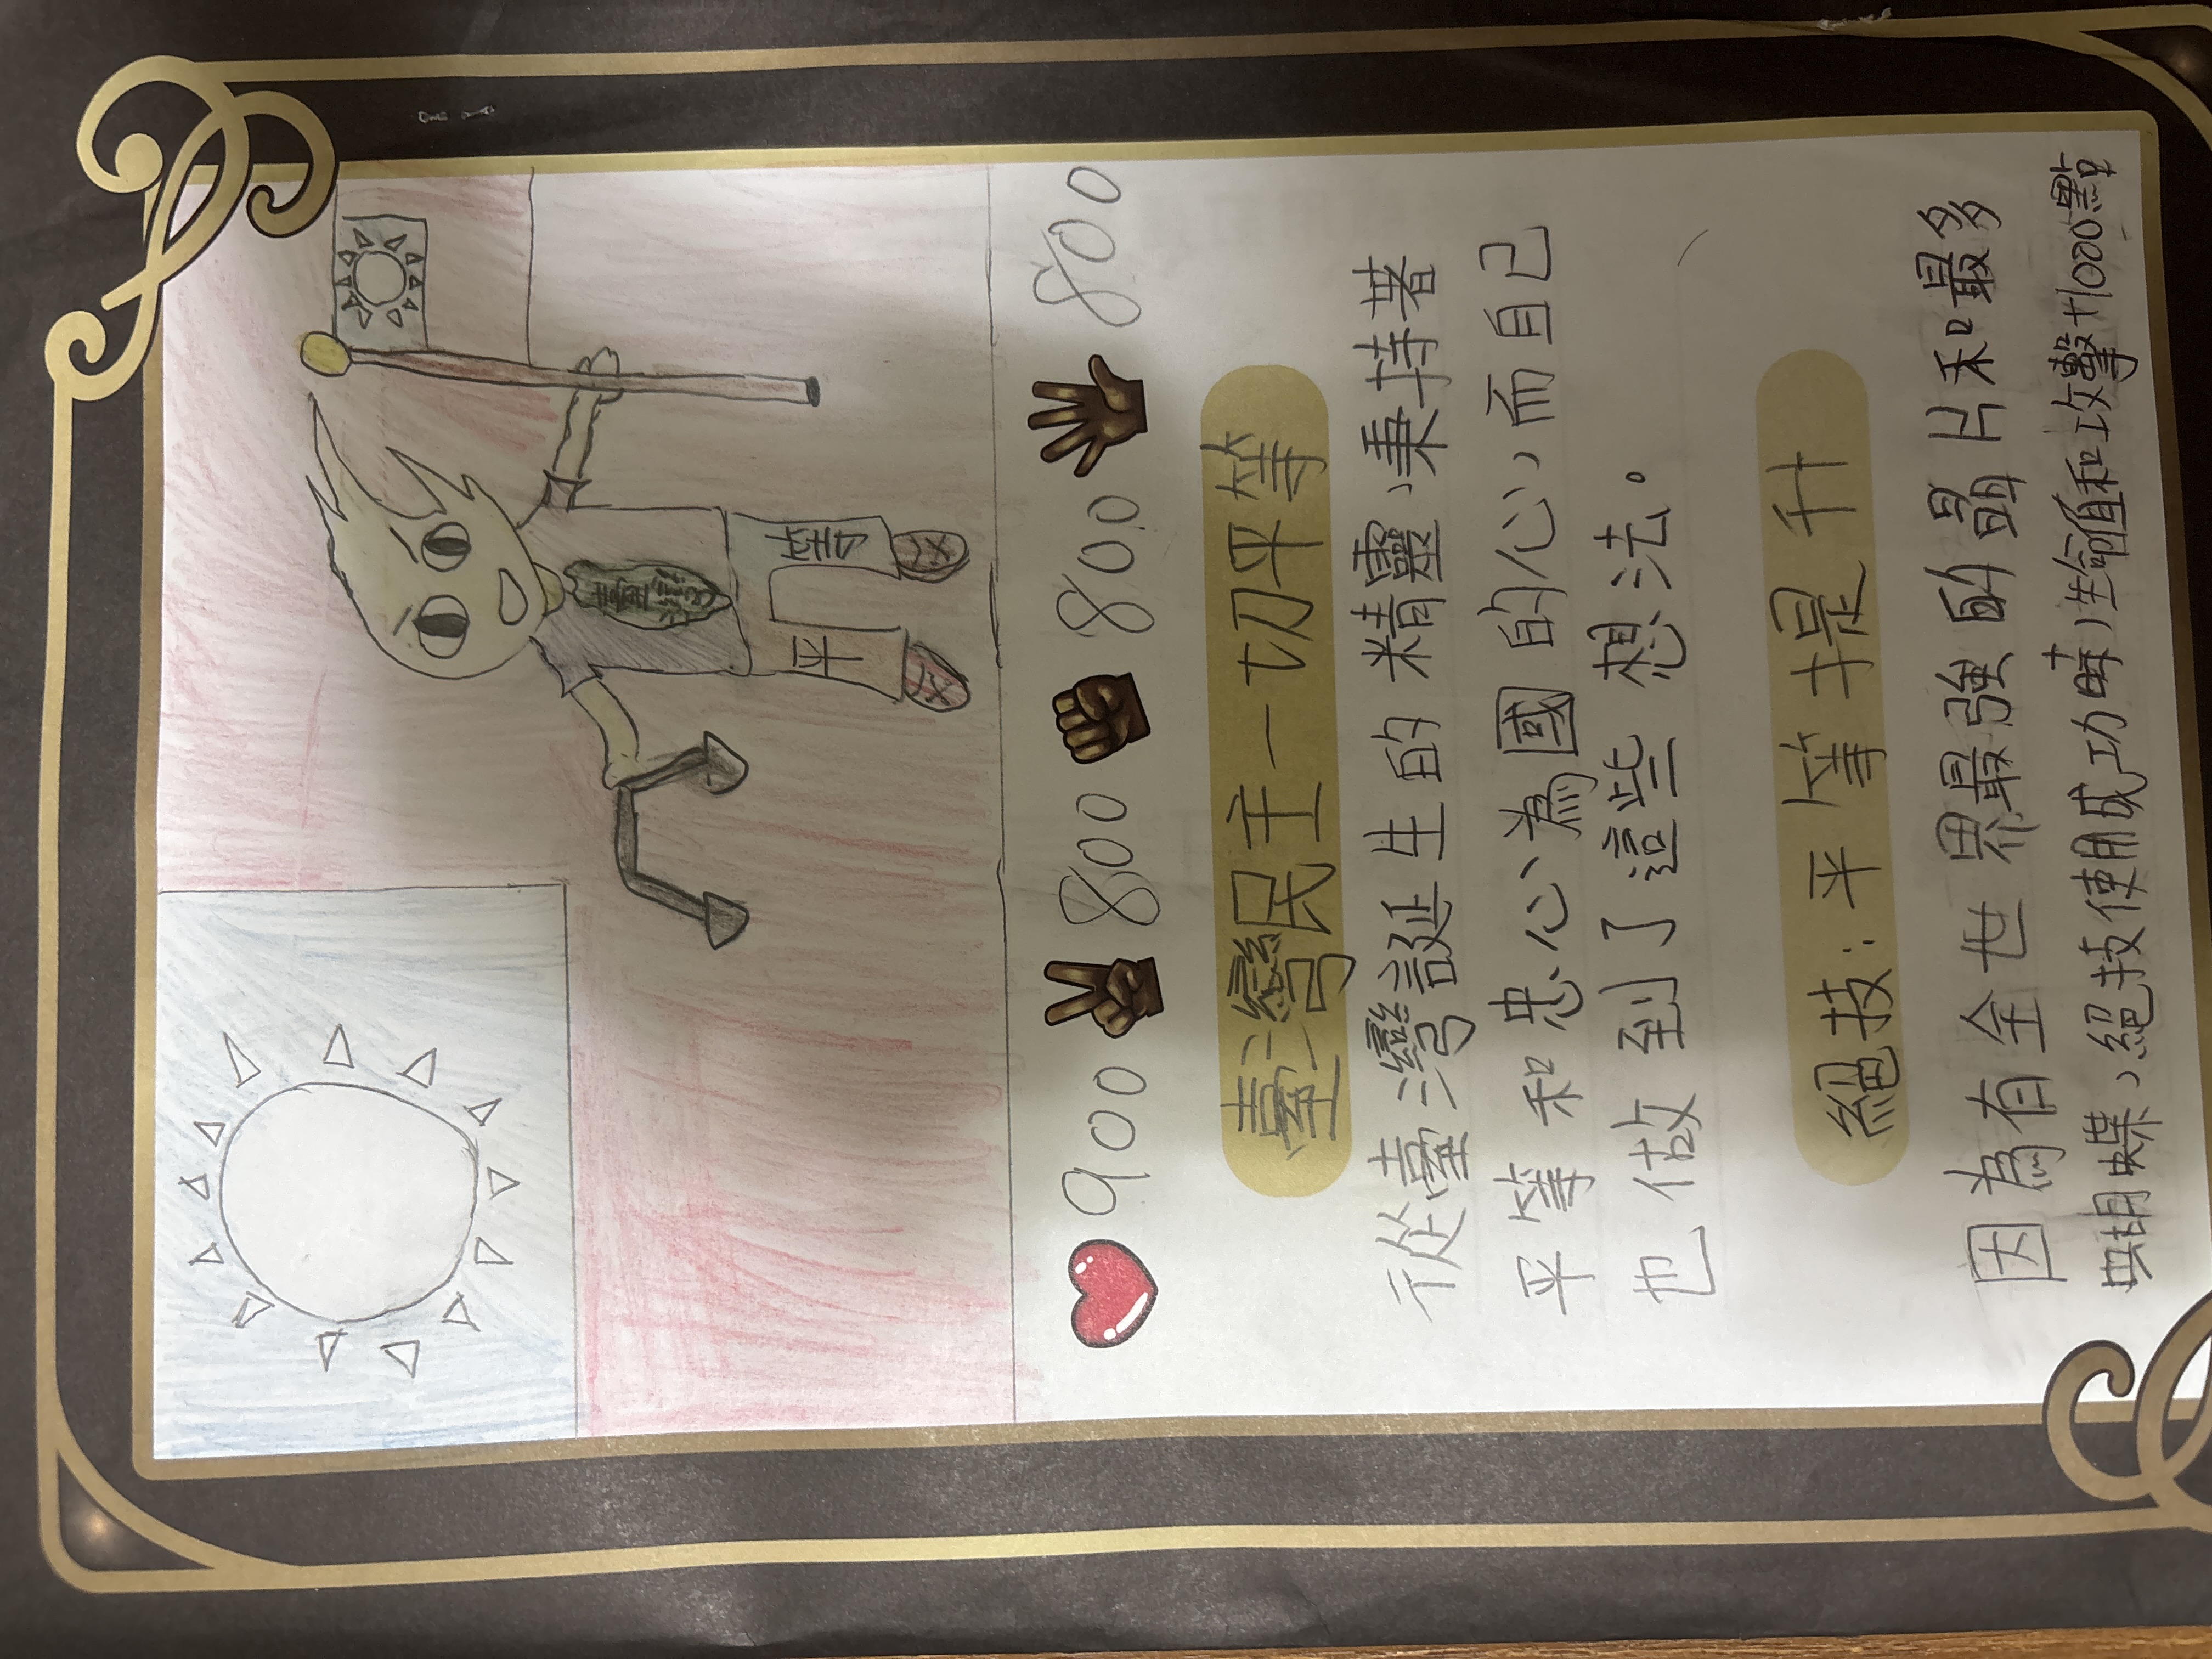 臺灣
平等
900 800 800 800
臺灣民主一切平等
從臺灣誕生的精靈,秉持著
平等和忠心為國的心,而自己
也做到了這些想法。
絕技:平等提升
因為有全世界最強的晶片和最多
蝴蝶,絕技使用成功時,生命值和攻擊+1000點